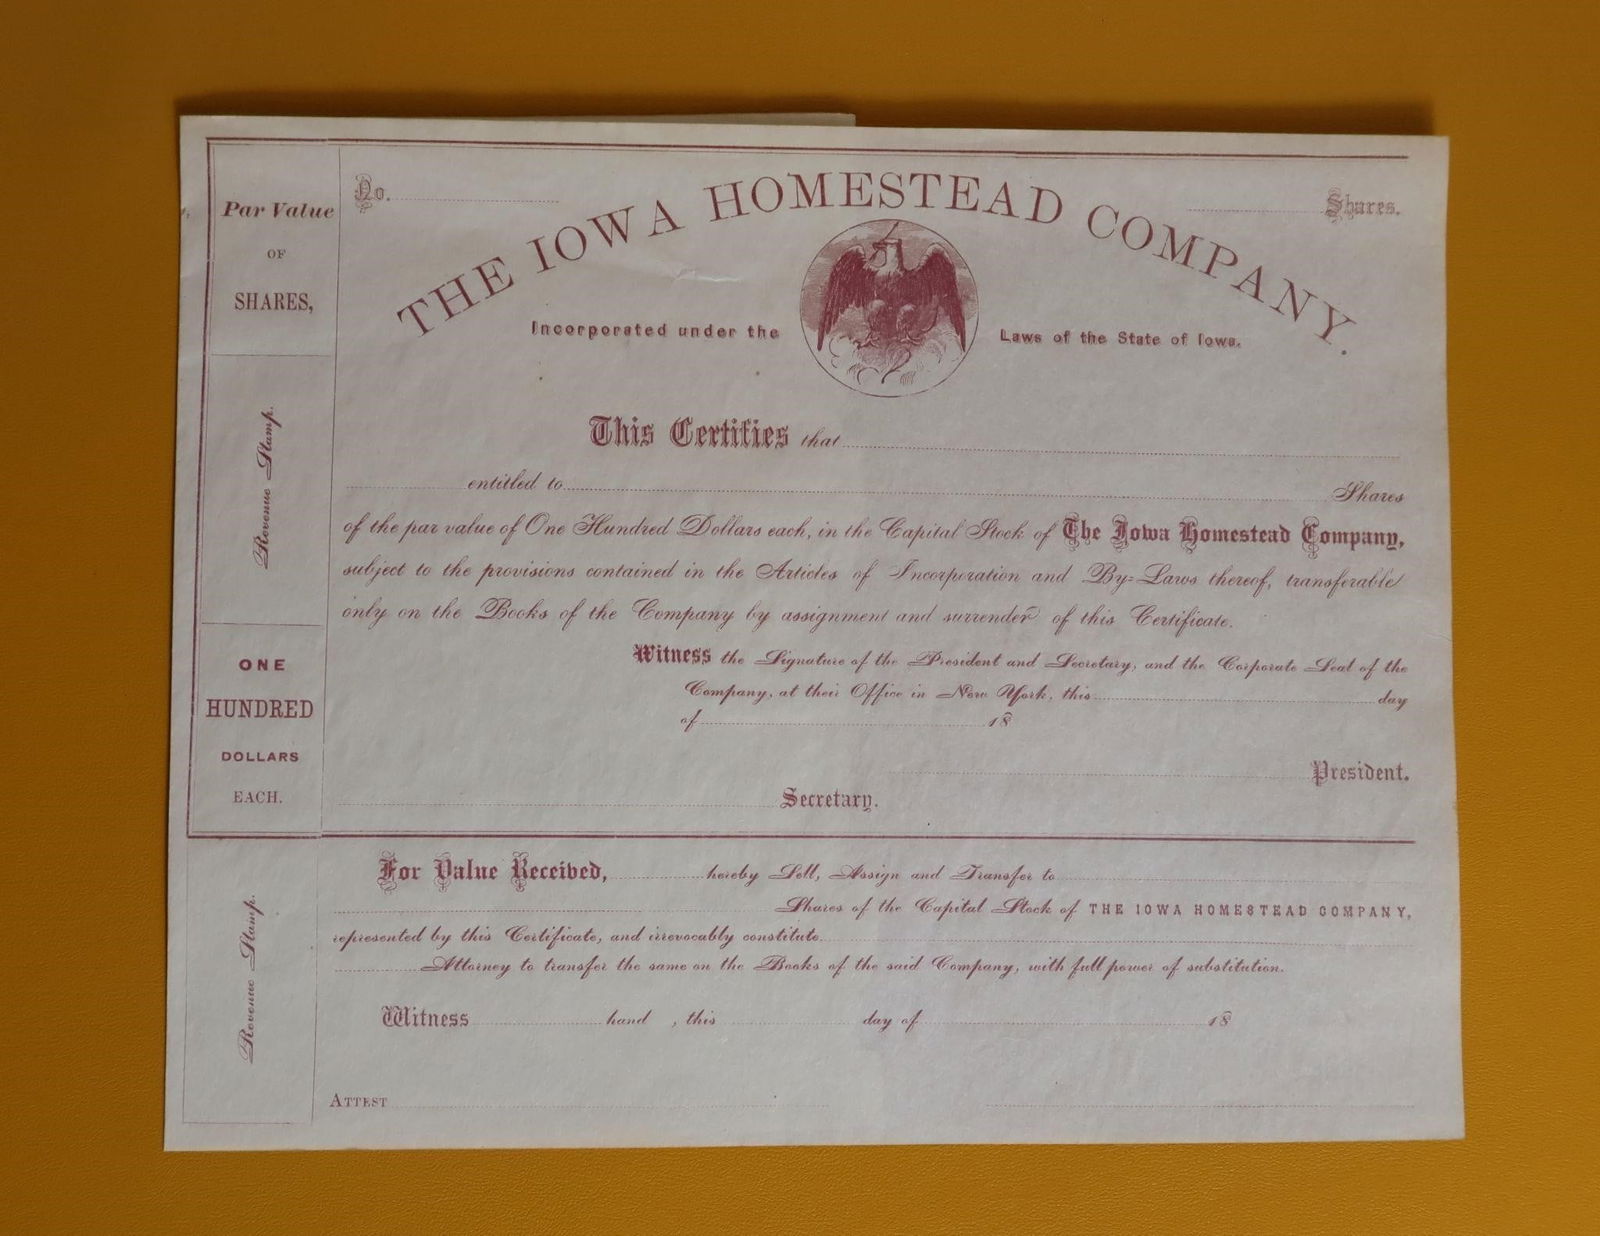 No.
Shares.
THE IOWA HOMESTEAD COMPANY.
Incorporated under the Laws of the State of Iowa.
Par Value
OF
SHARES,
Revenue Stamp.
ONE
HUNDRED
DOLLARS
EACH.
This Certifies that
entitled to Shares
of the par value of One Hundred Dollars each, in the Capital Stock of The Iowa Homestead Company,
subject to the provisions contained in the Articles of Incorporation and By=Laws thereof, transferable
only on the Books of the Company by assignment and surrender of this Certificate.
Witness the Signature of the President and Secretary, and the Corporate Seal of the
Company, at their Office in New York, this day
of 18
President.
Secretary.
Revenue Stamp.
For Value Received, hereby Sell, Assign and Transfer to
Shares of the Capital Stock of THE IOWA HOMESTEAD COMPANY,
represented by this Certificate, and irrevocably constitute
Attorney to transfer the same on the Books of the said Company, with full power of substitution.
Witness hand , this day of 18
ATTEST